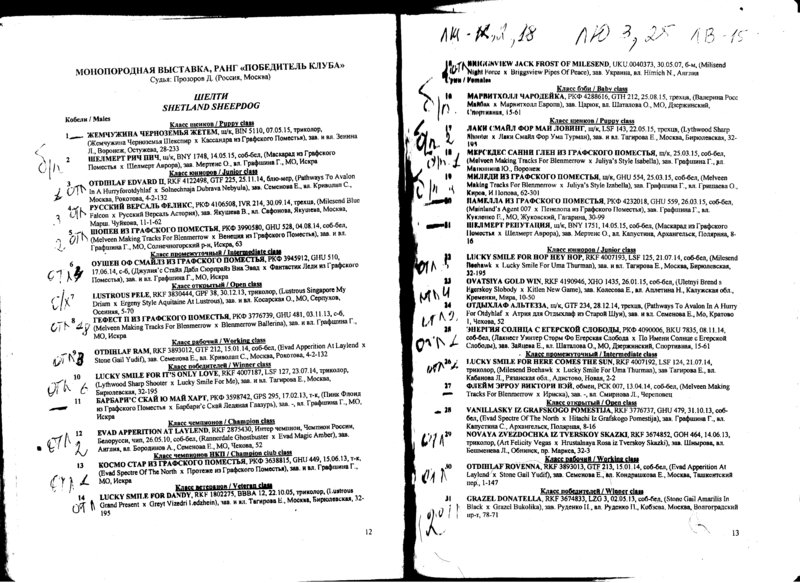 МОНОПОРОДНАЯ ВЫСТАВКА, РАНГ «ПОБЕДИТЕЛЬ КЛУБА»
Судья: Прозоров Д. (Россия, Москва)
ШЕЛТИ
SHETLAND SHEEPDOG
Кобели / Males
Класс щенков / Puppy class
1 ЖЕМЧУЖИНА ЧЕРНОЗЕМЬЯ ЖЕТЕМ, щ/к, BIN 5110, 07.05.15, триколор,
(Жемчужина Черноземья Шекспир х Кассандра из Графского Поместья), зав. и вл. Зенина
Л., Воронеж, Остужева, 28-233
2 ШЕЛМЕРТ РИЧ ПИЧ, щ/к, BNY 1748, 14.05.15, соб-бел, (Маскарад из Графского
Поместья х Шелмерт Аврора), зав. Мертис О., вл. Графшина Г., МО, Искра
Класс юниоров / Junior class
3 OTDIHLAF EDVARD II, RKF 4122498, GTF 225, 25.11.14, блю-мер, (Pathways To Avalon
In A Hurry х Solnechnaja Dubrava Nebyula), зав. Семенова Е., вл. Криволап С.,
Москва, Рокотова, 4-2-132
4 РУССКИЙ ВЕРСАЛЬ ФЕЛИКС, РКФ 4106508, IVR 214, 30.09.14, трехцв, (Milesend Blue
Falcon х Русский Версаль Астория), зав. Якушева В., вл. Сафонова, Якушева, Москва,
Марш. Чуйкова, 11-1-62
5 ШОПЕН ИЗ ГРАФСКОГО ПОМЕСТЬЯ, РКФ 3990580, GHU 528, 04.08.14, соб-бел,
(Melveen Making Tracks For Blenmerrow х Венеция из Графского Поместья), зав. и вл.
Графшина Г., МО, Солнечногорский р-н, Искра, 63
Класс промежуточный / Intermediate class
6 ОУШЕН ОФ СМАЙЛЗ ИЗ ГРАФСКОГО ПОМЕСТЬЯ, РКФ 3945912, GHU 510,
17.06.14, с-б, (Джулис'с Стайл Дабл Сюрпрайз Виа Эвад х Фантастик Леди из Графского
Поместья), зав. и вл. Графшина Г., МО, Искра
Класс открытый / Open class
7 LUSTROUS PELE, RKF 3830444, GPF 38, 30.12.13, триколор, (Lustrous Singapore My
Driam х Ergeny Style Aquitaine At Lustrous), зав. и вл. Косарская О., МО, Серпухов,
Осенняя, 5-70
8 ГЕФЕСТ П ИЗ ГРАФСКОГО ПОМЕСТЬЯ, РКФ 3776739, GHU 481, 03.11.13, с-б,
(Melveen Making Tracks For Blenmerrow х Blenmerrow Ballerina), зав. и вл. Графшина Г.,
МО, Искра
Класс рабочий / Working class
9 OTDIHLAF RAM, RKF 3893012, GTF 212, 15.01.14, соб-бел, (Evad Apperition At Laylend х
Stone Gail Yudif), зав. Семенова Е., вл. Криволап С., Москва, Рокотова, 4-2-132
Класс победителей / Winner class
10 LUCKY SMILE FOR IT'S ONLY LOVE, RKF 4007187, LSF 127, 23.07.14, триколор,
(Lythwood Sharp Shooter х Lucky Smile For Me), зав. и вл. Тагирова Е., Москва,
Бирюлевская, 32-195
11 БАРБАРИ'С СКАЙ Ю МАЙ ХАРТ, РКФ 3598742, GPS 295, 17.02.13, т-к, (Пинк Флоид
из Графского Поместья х Барбари'с Скай Ледяная Глазурь), зав. -, вл. Графшина Г., МО,
Искра
Класс чемпионов / Champion class
12 EVAD APPERITION AT LAYLEND, RKF 2875430, Интер чемпион, Чемпион России,
Белорусси, чип, 26.05.10, соб-бел, (Rannerdale Ghostbuster х Evad Magic Amber), зав.
Англия, вл. Бородина А., Семенова Е., МО, Чехово, 52
Класс чемпионов НКП / Champion club class
13 КОСМО СТАР ИЗ ГРАФСКОГО ПОМЕСТЬЯ, РКФ 3638815, GHU 449, 15.06.13, т-к,
(Evad Spectre Of The North х Протеже из Графского Поместья), зав. и вл. Графшина Г.,
МО, Искра
Класс ветеранов / Veteran class
14 LUCKY SMILE FOR DANDY, RKF 1802275, BBBA 12, 22.10.05, триколор, (Lustrous
Grand Present х Greyt Vizedri Ledzhein), зав. и вл. Тагирова Е., Москва, Бирюлевская, 32-
195
12
BRIGGNVIEW JACK FROST OF MILESEND, UKU 0040373, 30.05.07, б-м, (Milesend
Night Force х Briggview Pipes Of Peace), зав. Украина, вл. Himich N., Англия
Суки / Females
Класс бэби / Baby class
16 МАРВИТХОЛЛ ЧАРОДЕЙКА, РКФ 4288616, GTH 212, 25.08.15, трехцв, (Валерина Росс
Майбах х Марвитхолл Европа), зав. Царюк, вл. Шаталова О., МО, Дзержинский,
Спортивная, 15-61
Класс щенков / Puppy class
17 ЛАКИ СМАЙЛ ФОР МАЙ ЛОВИНГ, LSF 143, 22.05.15, трехцв, (Lythwood Sharp
Shooter х Лаки Смайл Фор Ума Турман), зав. и вл. Тагирова Е., Москва, Бирюлевская, 32-
195
18 МЕРСЕДЕС САННИ ГЛЕН ИЗ ГРАФСКОГО ПОМЕСТЬЯ, щ/к, 25.03.15, соб-бел,
(Melveen Making Tracks For Blenmerrow х Juliya's Style Isabella), зав. Графшина Г., вл.
Матюшина Ю., Воронеж
19 МИЛЕДИ ИЗ ГРАФСКОГО ПОМЕСТЬЯ, щ/к, GHU 554, 25.03.15, соб-бел, (Melveen
Making Tracks For Blenmerrow х Juliya's Style Izabella), зав. Графшина Г., вл. Гришаева О.,
Киров, И Попова, 62-301
ПАМЕЛЛА ИЗ ГРАФСКОГО ПОМЕСТЬЯ, РКФ 4232018, GHU 559, 26.03.15, соб-бел,
(Mainland's Agent 007 х Пенелопа из Графского Поместья), зав. Графшина Г., вл.
Кукленко Е., МО, Жуковский, Гагарина, 30-99
ШЕЛМЕРТ РЕПУТАЦИЯ, щ/к, BNY 1751, 14.05.15, соб-бел, (Маскарад из Графского
Поместья х Шелмерт Аврора), зав. Мертис О., вл. Капустина, Архангельск, Полярная, 8-
16
Класс юниоров / Junior class
22 LUCKY SMILE FOR HOP HEY HOP, RKF 4007193, LSF 125, 21.07.14, соб-бел, (Milesend
Boehawk х Lucky Smile For Uma Thurman), зав. и вл. Тагирова Е., Москва, Бирюлевская,
32-195
23 OVATSIYA GOLD WIN, RKF 4190946, XHO 1435, 26.01.15, соб-бел, (Uletnyi Brend s
Egerskoy Slobody х Kitlen New Game), зав. Колосова Е., вл. Аплетина Н., Калужская обл.,
Кременки, Мира, 10-50
24 ОТДЫХЛАФ АЛЬТЕЗЗА, щ/к, GTF 234, 28.12.14, трехцв, (Pathways To Avalon In A Hurry
For Otdyhlaf х Атрия для Отдыхлаф из Старой Шуи), зав. и вл. Семенова Е., Мо, Кратово
1, Чехова, 52
25 ЭНЕРГИЯ СОЛНЦА С ЕГЕРСКОЙ СЛОБОДЫ, РКФ 4090006, BKU 7835, 08.11.14,
соб-бел, (Лакнест Уингер Сторм Фо Егерская Слобода х По Имени Солнце с Егерской
Слободы), зав. Зайцева Е., вл. Шаталова О., МО, Дзержинский, Спортивная, 15-61
Класс промежуточный / Intermediate class
26 LUCKY SMILE FOR HERE COMES THE SUN, RKF 4007192, LSF 124, 21.07.14,
триколор, (Milesend Boehawk х Lucky Smile For Uma Thurman), зав Тагирова Е., вл.
Кабанова Л., Рязанская обл., Адистово, Новая, 2-2
27 ФЛЕЙМ ЭРРОУ ВИКТОРИ ВЭЙ, обмен, РСК 007, 13.04.14, соб-бел, (Melveen Making
Tracks For Blenmerrow х Ириска), зав. -, вл. Смирнова Л., Череповец
Класс открытый / Open class
28 VANILLASKY IZ GRAFSKOGO POMESTIJA, RKF 3776737, GHU 479, 31.10.13, соб-
бел, (Evad Spectre Of The North х Hitachi Iz Grafskogo Pomestija), зав. Графшина Г., вл.
Капустина С., Архангельск, Полярная, 8-16
29 NOVAYA ZVEZDOCHKA IZ TVERSKOY SKAZKI, RKF 3674852, GOH 464, 14.06.13,
триколор, (Art Felicity Vegas х Hrustalnaya Roza iz Tverskoy Skazki), зав. Шмырова, вл.
Бешменева Л., Обнинск, пр. Маркса, 32-3
Класс рабочий / Working class
30 OTDIHLAF ROVENNA, RKF 3893013, GTF 213, 15.01.14, соб-бел, (Evad Apperition At
Laylend х Stone Gail Yudif), зав. Семенова Е., вл. Кондрашкова Е., Москва, Ташкентский
пер., 1-147
Класс победителей / Winner class
31 GRAZEL DONATELLA, RKF 3674833, LZG 3, 02.05.13, соб-бел, (Stone Gail Amarilis In
Black х Grazel Bukolika), зав. Руденко П., вл. Руденко П., Кобзева, Москва, Волгоградский
пр-т, 78-71
13